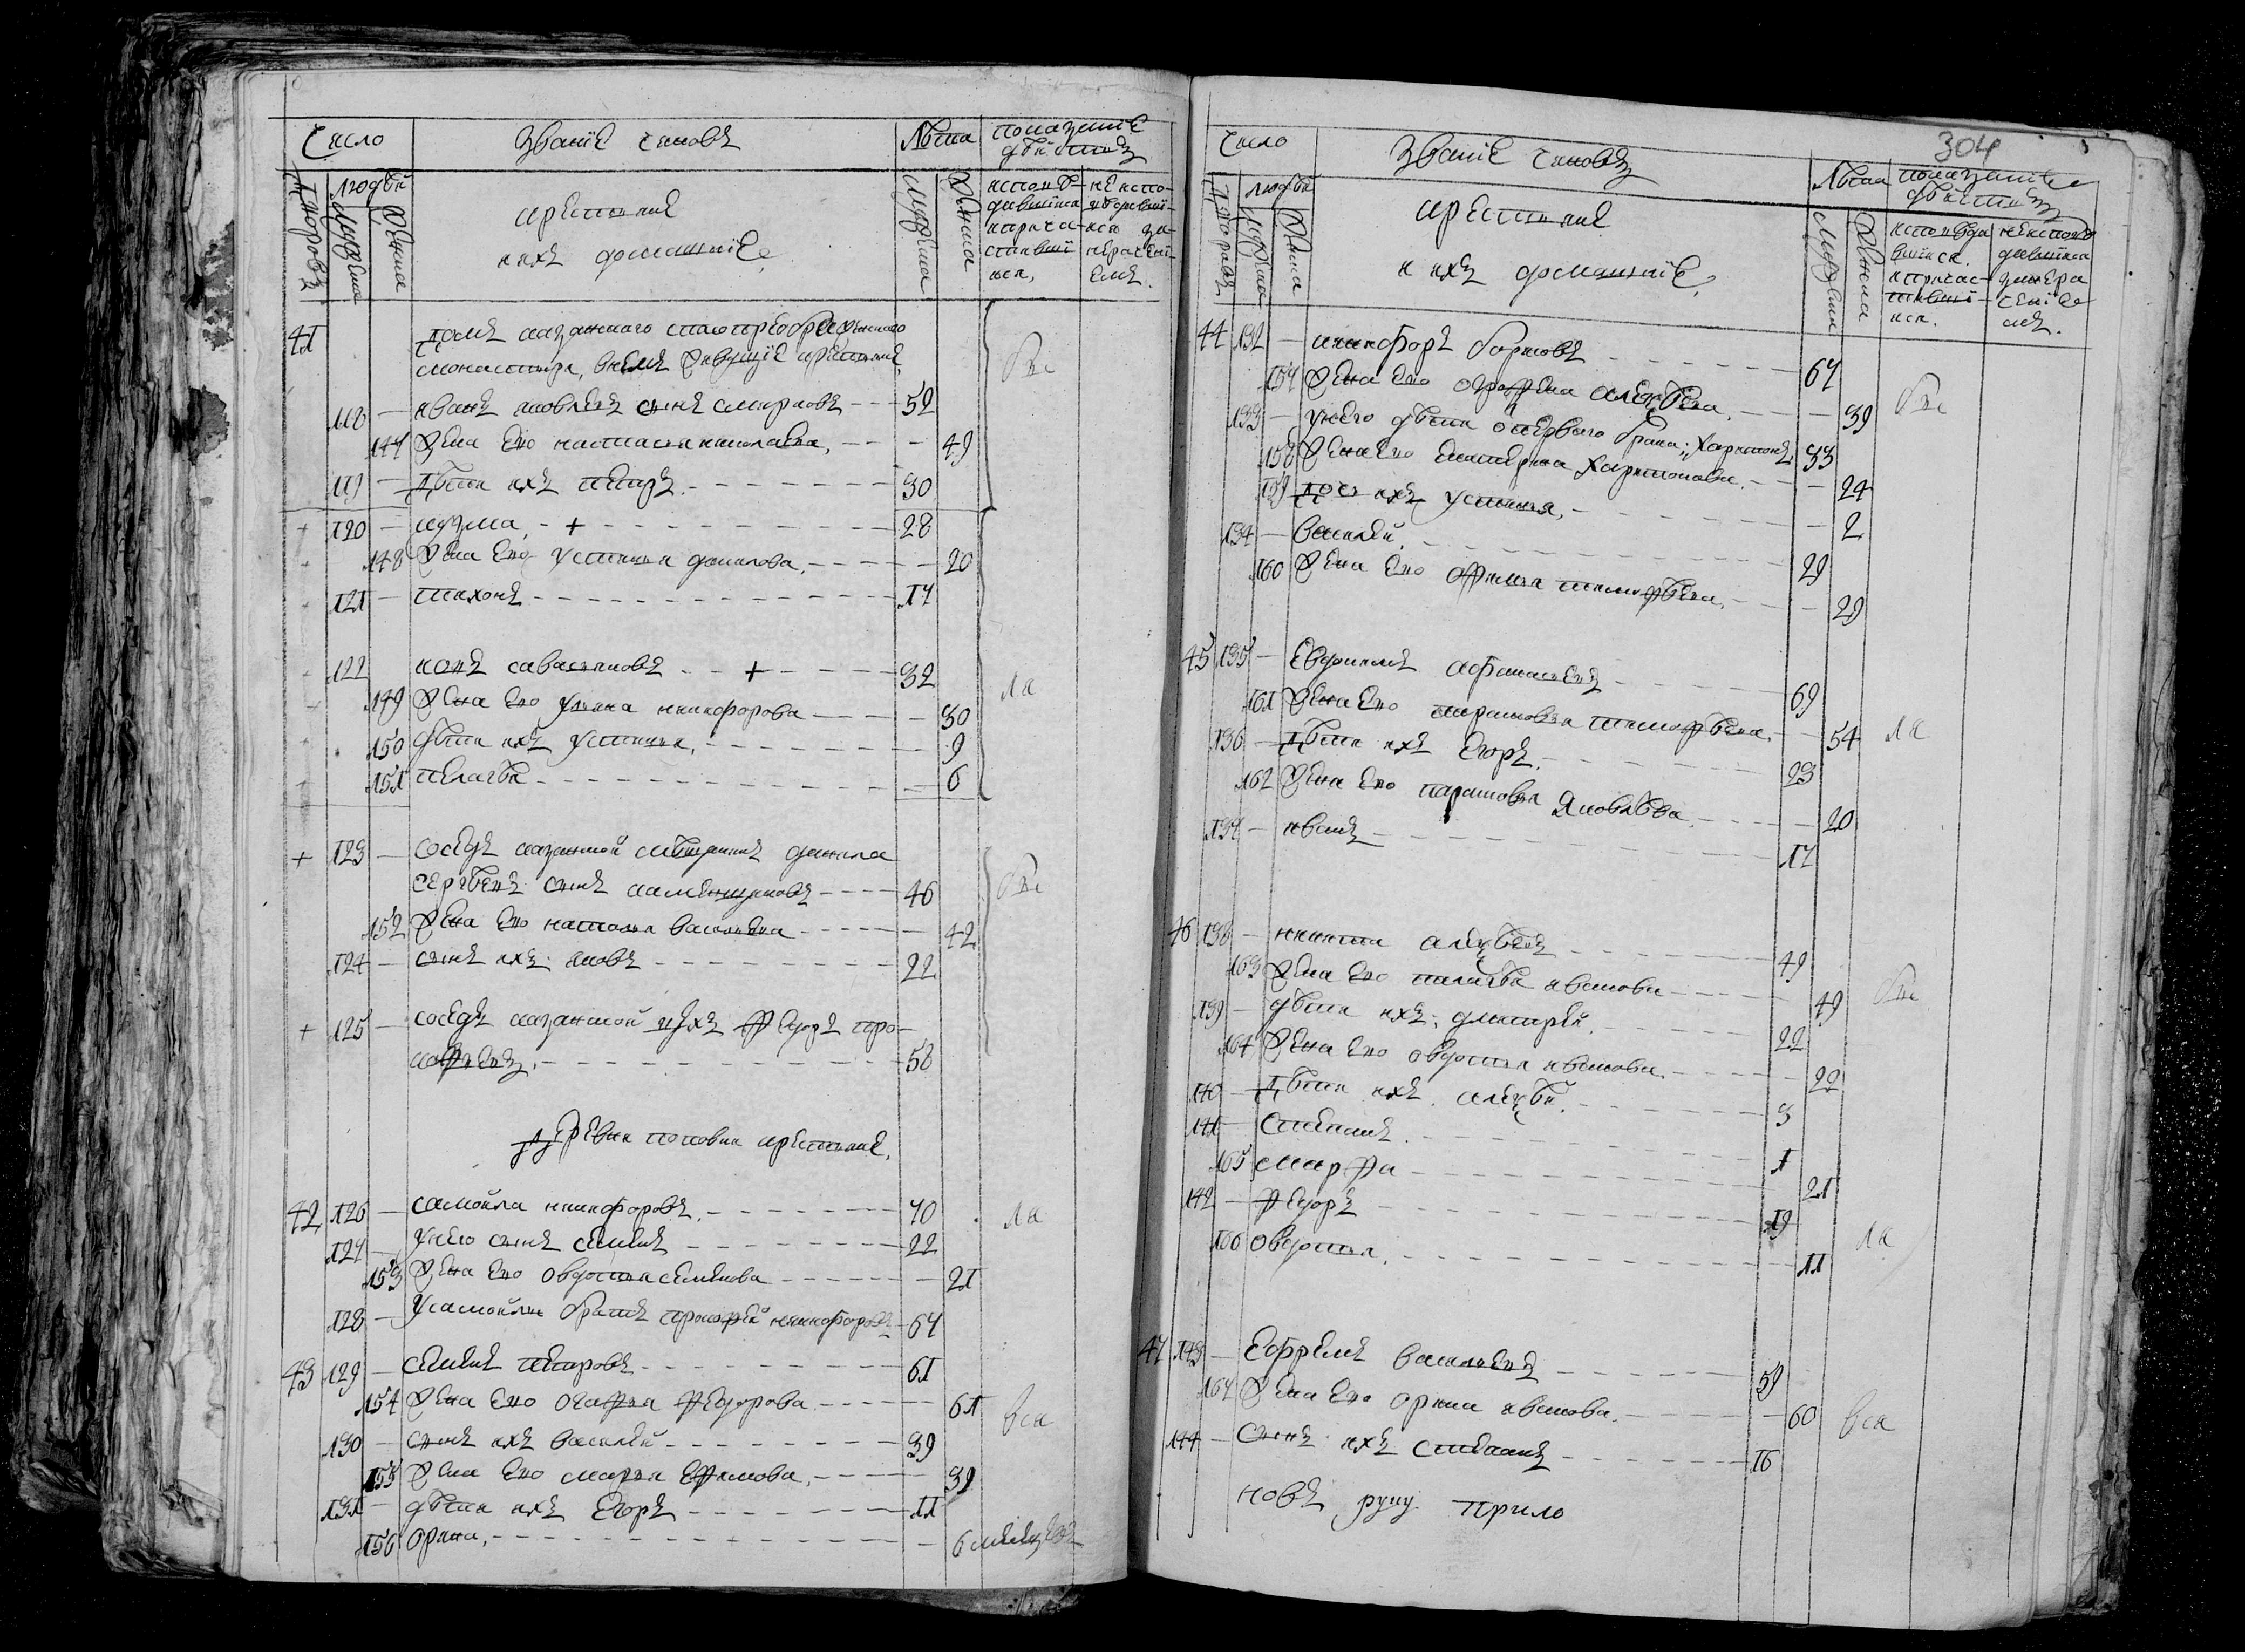 Число Званїе чиновъ Лѣта показанїе дѣиствъ
Дворовъ людѣй Мужеска Женска крестьяне и ихъ домашнїе Мужеска Женска исповѣдавшїяся и причастившїися, не исповѣдавшїися за нерачениемъ.
41 Домъ казанского спасопреображенского
монастыря, внемъ живущїе крестьяне
118 — иванъ яковлевъ сынъ смирновъ 52
147 Жена ево настасья николаева, 49
119 — Дѣти ихъ петръ 30
120 — кузма + 28
148 Жена ево устинья данилова 20
121 — тихонъ 17
122 конъ савастяновъ + 32
149 Жена ево улияна никифорова 30
150 дѣти ихъ устинья 9
151 пелагѣя 6
+ 123 — соседъ казанской мѣщанинъ данила
сергѣевъ сынъ каменщиковъ 46
152 Жена ево наталья васильева 42
124 — сынъ ихъ яковъ 22
+ 125 — соседъ казанской цехъ федоръ про-
кофьевъ 58
Деревни поповки крестьяне
42 126 — самойла никифоровъ 70
127 — У него сынъ семенъ 22
153 Жена ево овдотья семенова 21
128 — У самойлы братъ прокофей никифоровъ 67
43 129 — семенъ петровъ 61
154 Жена ево огафья федорова 61
130 — сынъ ихъ василей 39
155 Жена ево марья ефимова 39
131 — дѣти ихъ егоръ 11
156 орина 6 месяцевъ
304
Число Званїе чиновъ Лѣта показанїе дѣиствъ
Дворовъ людѣй Мужеска Женска крестьяне и ихъ домашнїе Мужеска Женска исповѣдавшїися и причастившїися. не исповѣдавшїися за нерачениемъ.
44 132 — никифоръ борисовъ 67
157 Жена ево ографена алексѣева 39
133 — у него дѣти от первого брака: Харитонъ 33
158 Жена ево екатерина Харитонова 24
159 дочь ихъ устинья 2
134 — василей 29
160 Жена ево офимья тимофѣева 29
45 135 — Евдокимъ афанасьевъ 69
161 Жена ево парасковья тимофѣева 54
136 — Дѣти ихъ Егоръ 23
162 Жена ево парасковья Яковлѣва 20
137 — иванъ 17
46 138 — никита алексѣевъ 49
163 Жена ево палагѣя иванова 49
139 — дѣти ихъ: дмитрей 22
164 Жена ево овдотья иванова 22
140 — Дѣти ихъ алексѣй 3
141 степанъ 1
165 марфа 21
142 — федоръ 19
166 овдотья 11
47 143 — Ефремъ васильевъ 59
167 Жена ево орина иванова 60
144 — Сынъ ихъ степанъ 16
новъ руку прило